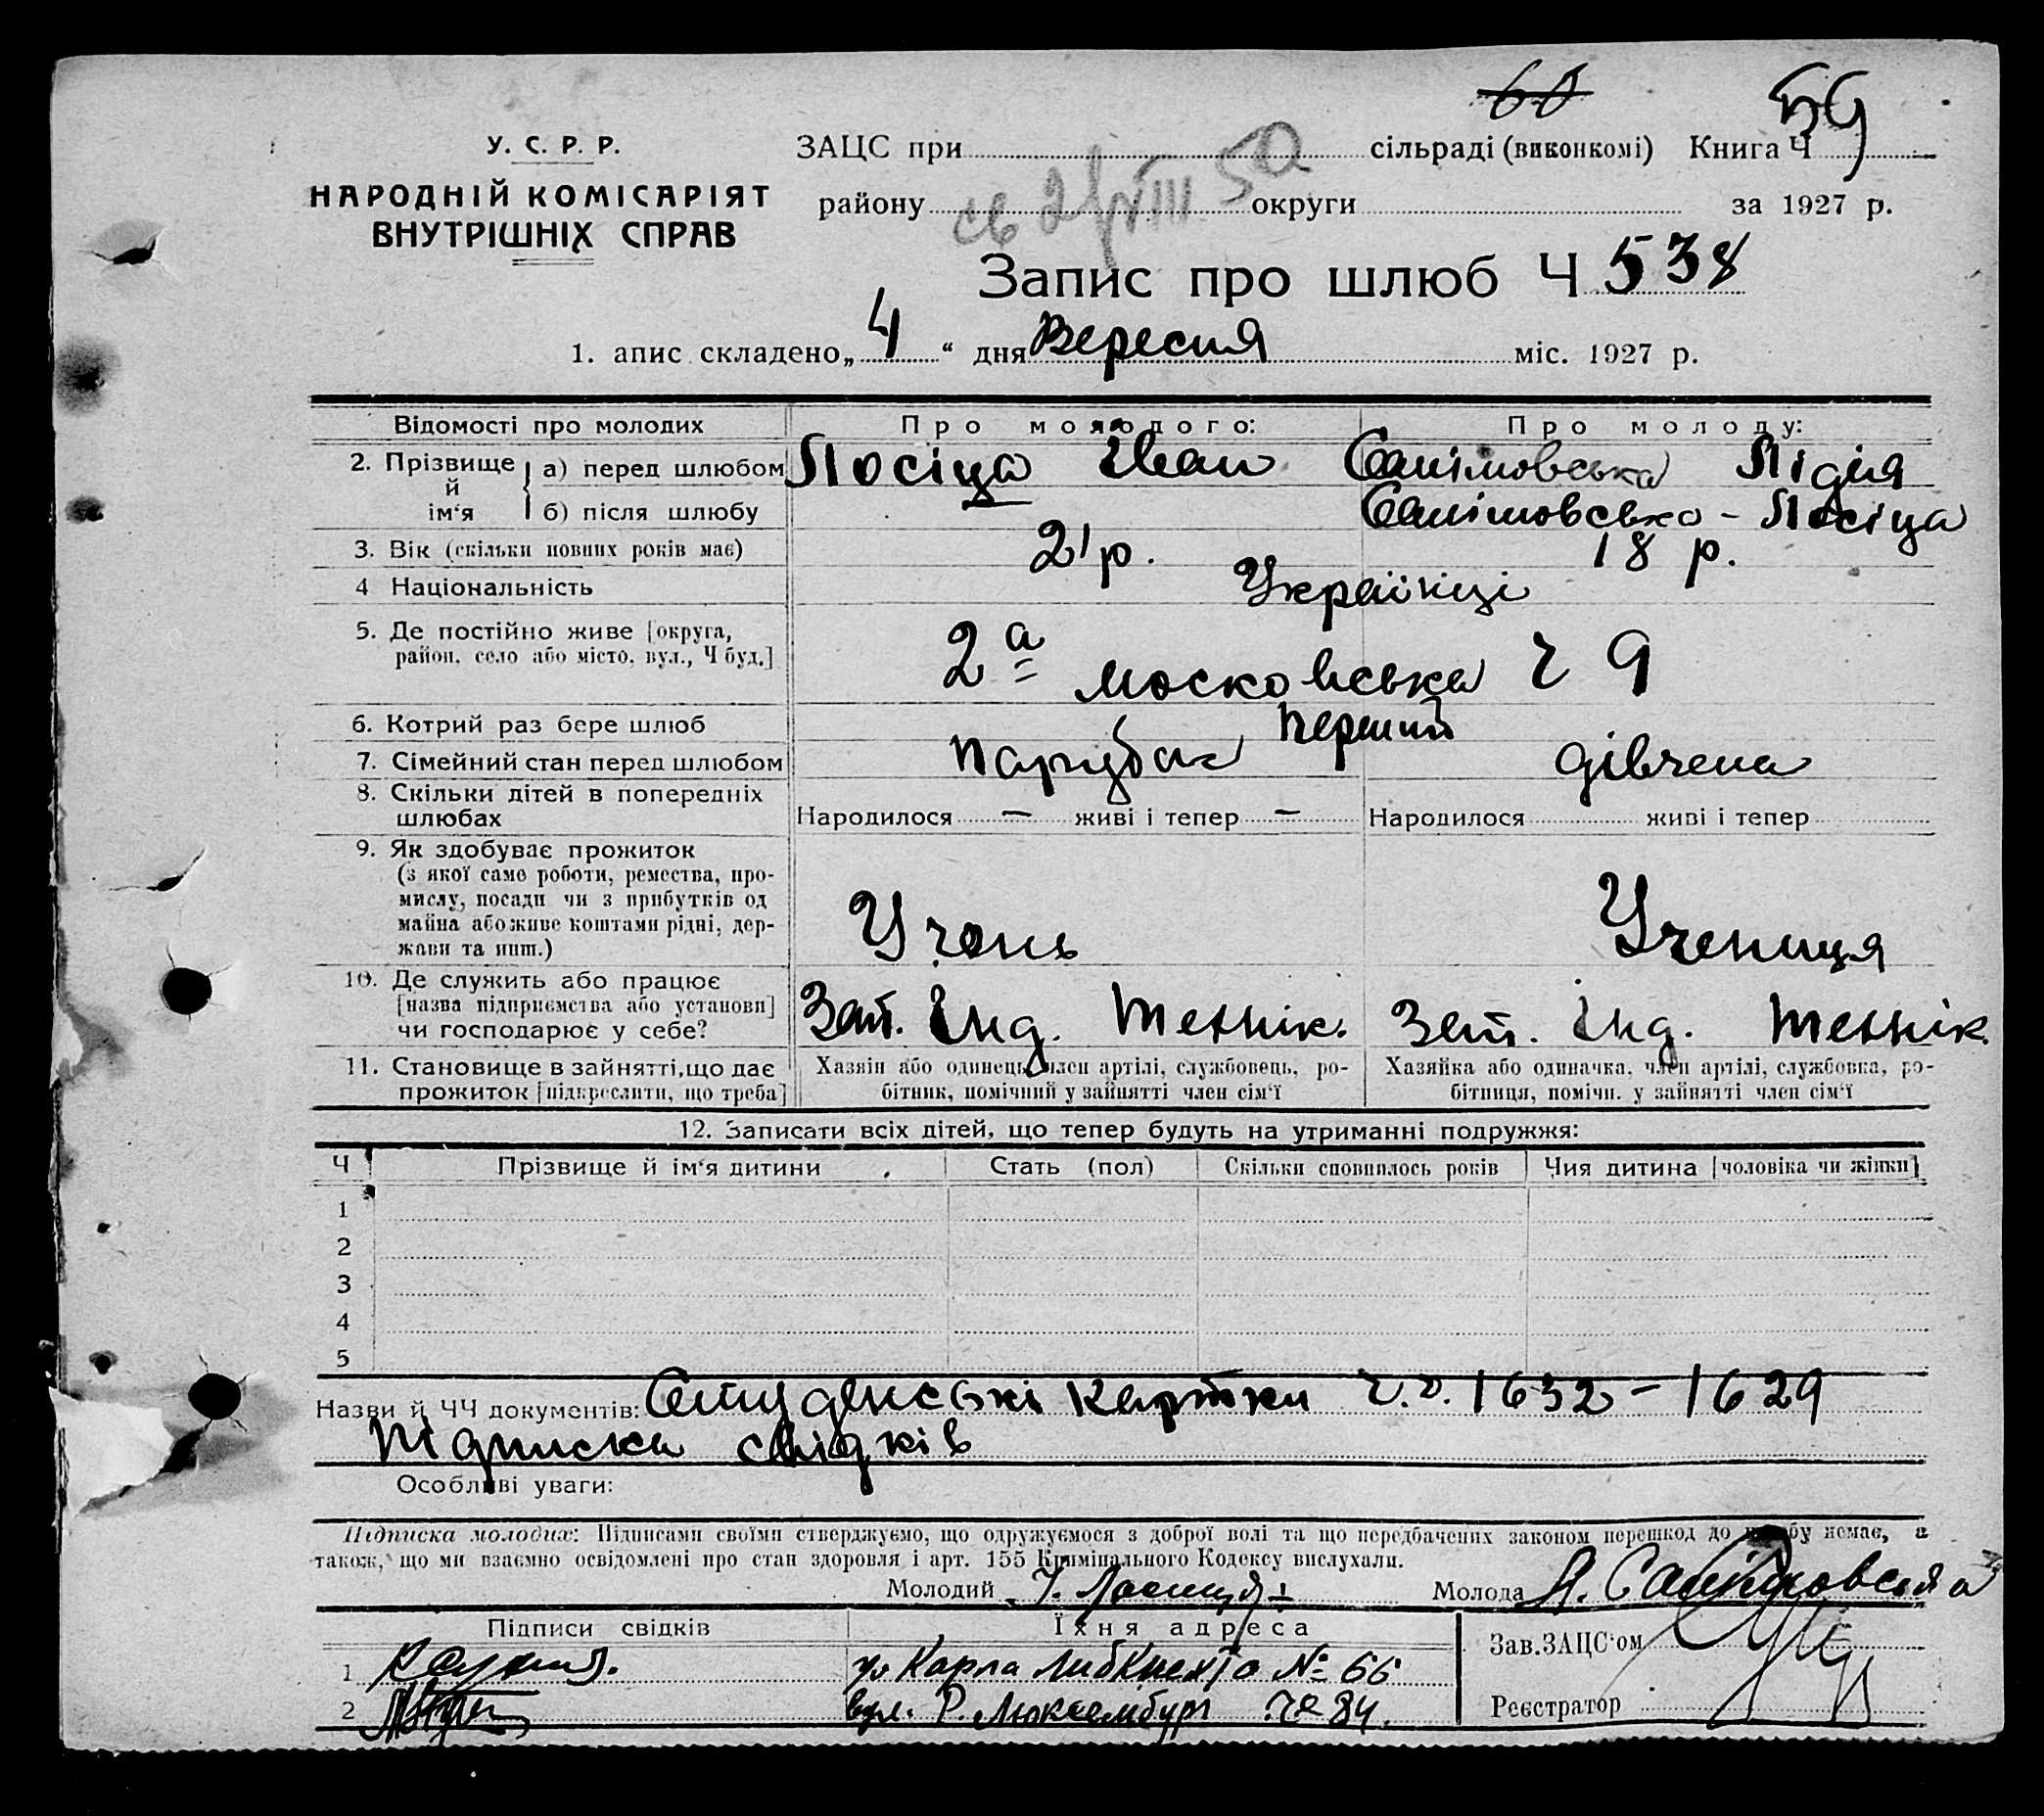 60 59
У. С. Р. Р.
НАРОДНІЙ КОМІСАРІЯТ
ВНУТРІШНІХ СПРАВ
ЗАЦС при сільраді (виконкомі) Книга Ч
району округи за 1927 р.
Запис про шлюб Ч 538
1. апис складено „ 4 “ дня Вересня міс. 1927 р.
Відомості про молодих Про молодого: Про молоду:
2. Прізвище й ім‘я а) перед шлюбом Лосіца Іван Санімовська Лідія
б) після шлюбу Санімовсько - Лосіца
3. Вік (скільки повних років має) 21 р. 18 р.
4 Національність Українці
5. Де постійно живе [округа,
район, село або місто, вул., Ч буд.] 2а Московська ч 9
6. Котрий раз бере шлюб Перший
7. Сімейний стан перед шлюбом Парубак дівчена
8. Скільки дітей в попередніх
шлюбах Народилося — живі і тепер — Народилося живі і тепер
9. Як здобуває прожиток
(з якої саме роботи, ремества, про-
мислу, посади чи з прибутків од
майна або живе коштами рідні, дер-
жави та инш.) Учень Учениця
10. Де служить або працює
[назва підприємства або установи]
чи господарює у себе? Зат. Інд. Технік. Зат. Інд. Технік.
11. Становище в зайнятті, що дає
прожиток [підкреслити, що треба]
Хазяін або одинець, член артілі, службовець, ро-
бітник, помічний у зайнятті член сім‘ї
Хазяйка або одиначка, член артілі, службовка, ро-
бітниця, помічн. у зайнятті член сім‘ї
12. Записати всіх дітей, що тепер будуть на утриманні подружжя:
Ч Прізвище й ім‘я дитини Стать (пол) Скільки сповнилось років Чия дитина [чоловіка чи жінки]
1
2
3
4
5
Назви й ЧЧ документів: Студенські картки ч.ч. 1632 - 1629
Підписка свідків
Особливі уваги:
Підписка молодих: Підписами своїми стверджуємо, що одружуємося з доброї волі та що передбачених законом перешкод до шлюбу немає, а
також, що ми взаємно освідомлені про стан здоровля і арт. 155 Кримінального Кодексу вислухали.
Молодий Молода Л. Санімовська
Підписи свідків Їхня адреса Зав. ЗАЦС‘ом
1 Карла Либкнехта № 66
2 вул. Р. Люксембург № 84.
Реєстратор